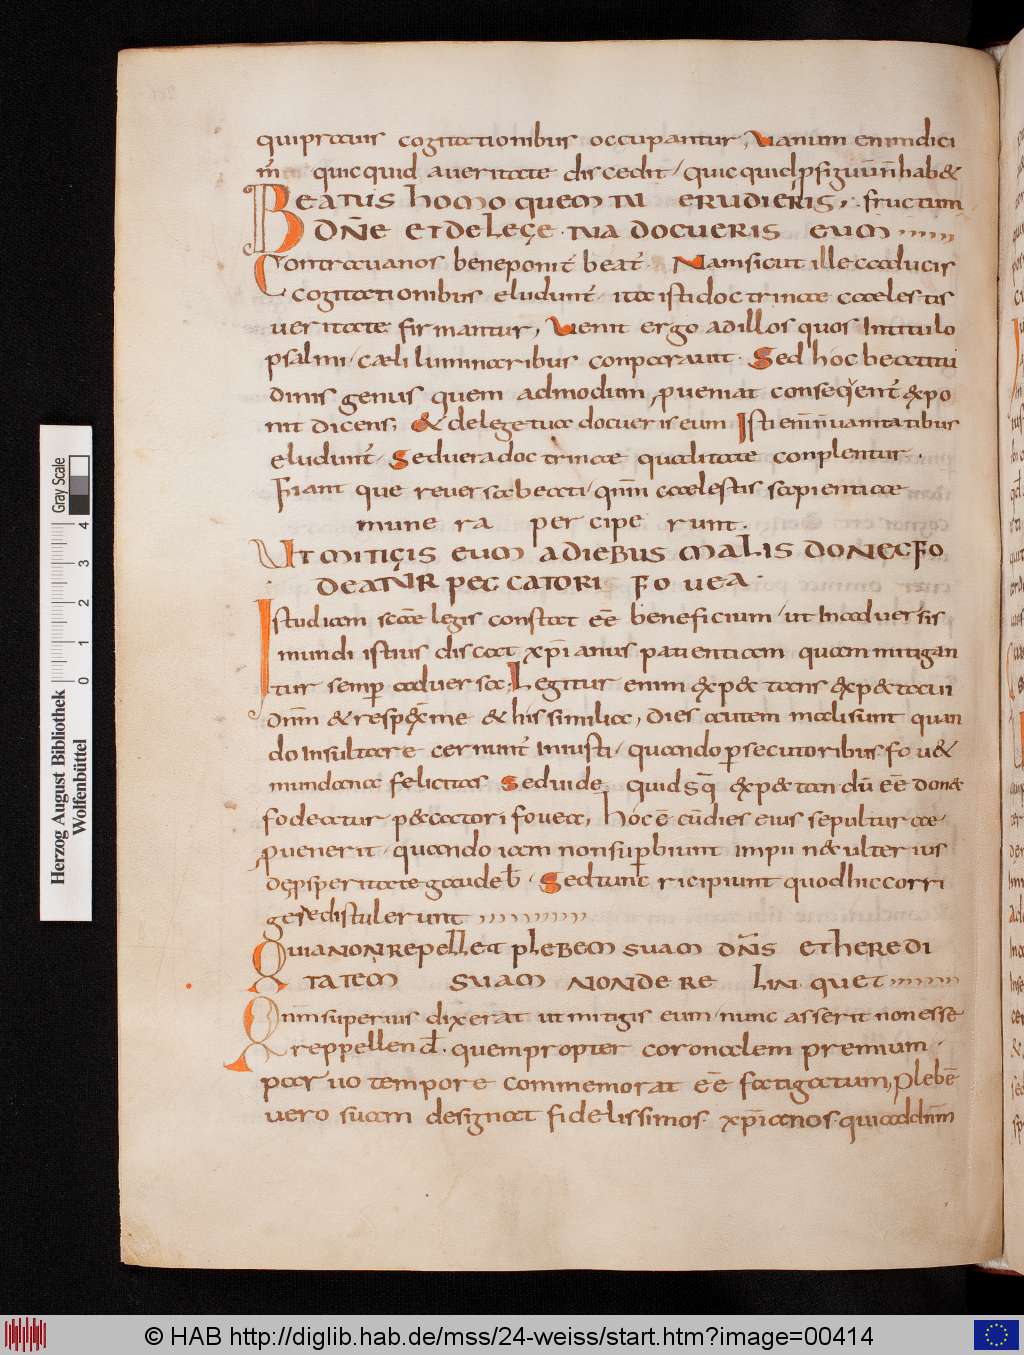 qui prauis cogitationibus occupantur, Uanum enim dici
quicquid a ueritate discedit, quicquid
Beatus homo quem tu erudieris, fructum
dn̄e et de lege tua docueris eum
Contra uanos bene ponit beat Nam sicut ille caducis
cogitationibus eludunt, ita isti doctrinae caelestis
ueritate firmantur, Uenit ergo ad illos quos In titulo
psalmi caeli luminaribus conparauit. Sed hoc beatitu
dinis genus quem admodum proueniat consequent expo
nit dicens, & de lege tua docueris eum Isti enim uanitatibus
eludunt. Sed uera doctrinae qualitate conplentur.
Fiant que reuersa beati, qnm̄ caelestis sapientiae
mune ra per cipe runt.
Ut mitiges eum a diebus malis donec fo
deatur peccatori fouea.
Istud iam scāe legis constat eē beneficium, ut In aduersis
mundi istius discat xp̄ianus patientiam quam mitigan
tur semp aduersa, Legitur enim exp&tans exp&taui
dnm̄ & respexit me & his similia, dies autem mali sunt quan
do Insultare cernunt Iniusti, quando persecutoribus fou&
mundana felicitas Sed uide quid expectan dū eē don&
fodeatur peccatori fouea, hoc ē cū dies eius sepulturae
puenerit, quando iam non superbiunt impii nec ulterius
de psperitate gaudeb Sed tunc ricipiunt quod hic corri
gere distulerunt
Quia non repellet plebem suam dn̄s et heredi
tatem suam non dere lin quet
Qnm̄ superius dixerat ut mitigis eum, nunc asserit non esse
reppellend. quem propter coronalem premium.
paruo tempore commemorat eē fatigatum, Plebē
uero suam designat fidelissimos. xp̄ianos. qui ad dnm̄
Herzog August Bibliothek
Wolfenbüttel
0 1 2 3 4
Gray Scale
© HAB http://diglib.hab.de/mss/24-weiss/start.htm?image=00414